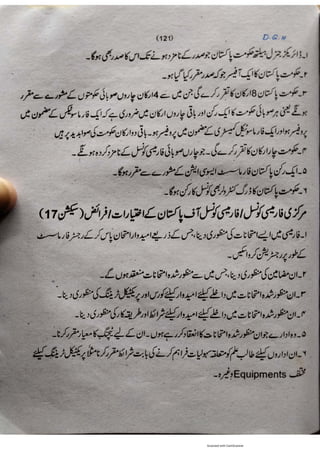 (121)
D.Q.M
۱۔ ڈائریکٹر جنرل ہیلتھ حکومت پاکستان جو صدر کے نامزد ہونے تک اس کا صدر بھی ہوگا۔
۲۔ حکومت پاکستان کا ایک آفیسر جو کہ صدر مقرر کیا گیا ہو۔
۳۔ حکومت پاکستان 8 ارکان کا تقرر کرے گی جن میں سے 4 ارکان چاروں صوبائی حکومتوں کے مشورے سے مقرر
ہونگے یعنی ہر صوبائی حکومت کا ایک رکن اور باقی چاروں ارکان میں ضروری ہے کہ ایک فارماسیوٹیکس کے مضمون میں
پروفیسر ہو اور ایک فارماسیوٹیکل کیمسٹری کے مضمون میں پروفیسر ہو۔ باقی دو ارکان حکومت کی صوابدید پر ہیں
۴۔ حکومت چار ارکان کا تقرر کرے گی۔ جو چاروں صوبائی فارمیسی کونسل کے نامزد کردہ ہونگے۔
۵۔ ایک رکن پاکستان فارماسسٹ ایسوسی ایشن کے مشورے سے مقرر ہوگا۔
۶۔ حکومت پاکستان کا ڈرگ کنٹرولر بھی کونسل کا رکن ہوگا۔
مرکزی فارمیسی کونسل / فارمیسی کونسل آف پاکستان کے اختیارات / فرائض (سیکشن 17)
۱۔ فارمیسی میں ایسے امتحانات کی منظوری دینا، جس کے ذریعے امیدوار امتحان پاس کر کے رجسٹر فارماسسٹ
کے طور پر رجسٹریشن کروا سکیں۔
۲۔ ان مضامین کی منظوری دینا، جس میں سے منظور شدہ امتحانات منعقد ہوں گے۔
۳۔ ان منظور شدہ امتحانات میں داخلے کیلئے امیدوار کیلئے کورس اور پریکٹیکل ٹریننگ کی منظوری دینا۔
۴۔ ان منظور شدہ امتحانات میں داخلے کیلئے امیدوار کیلئے شرائط اور طریقہ کار کی منظوری دینا۔
۵۔ وہ ادارے جو ان منظور شدہ امتحانات کا انعقاد کر رہے ہوں۔ ان کے لیے ٹیچنگ کا معیار مقرر کرنا۔
۶۔ ان اداروں کیلئے طالب علم کو متعلقہ سہولیات فراہم کرنے کی بابت شرائط مقرر کرنا مثلاً پریکٹیکل ٹریننگ کیلئے
مختلف Equipments وغیرہ۔
Scanned with CamScanner